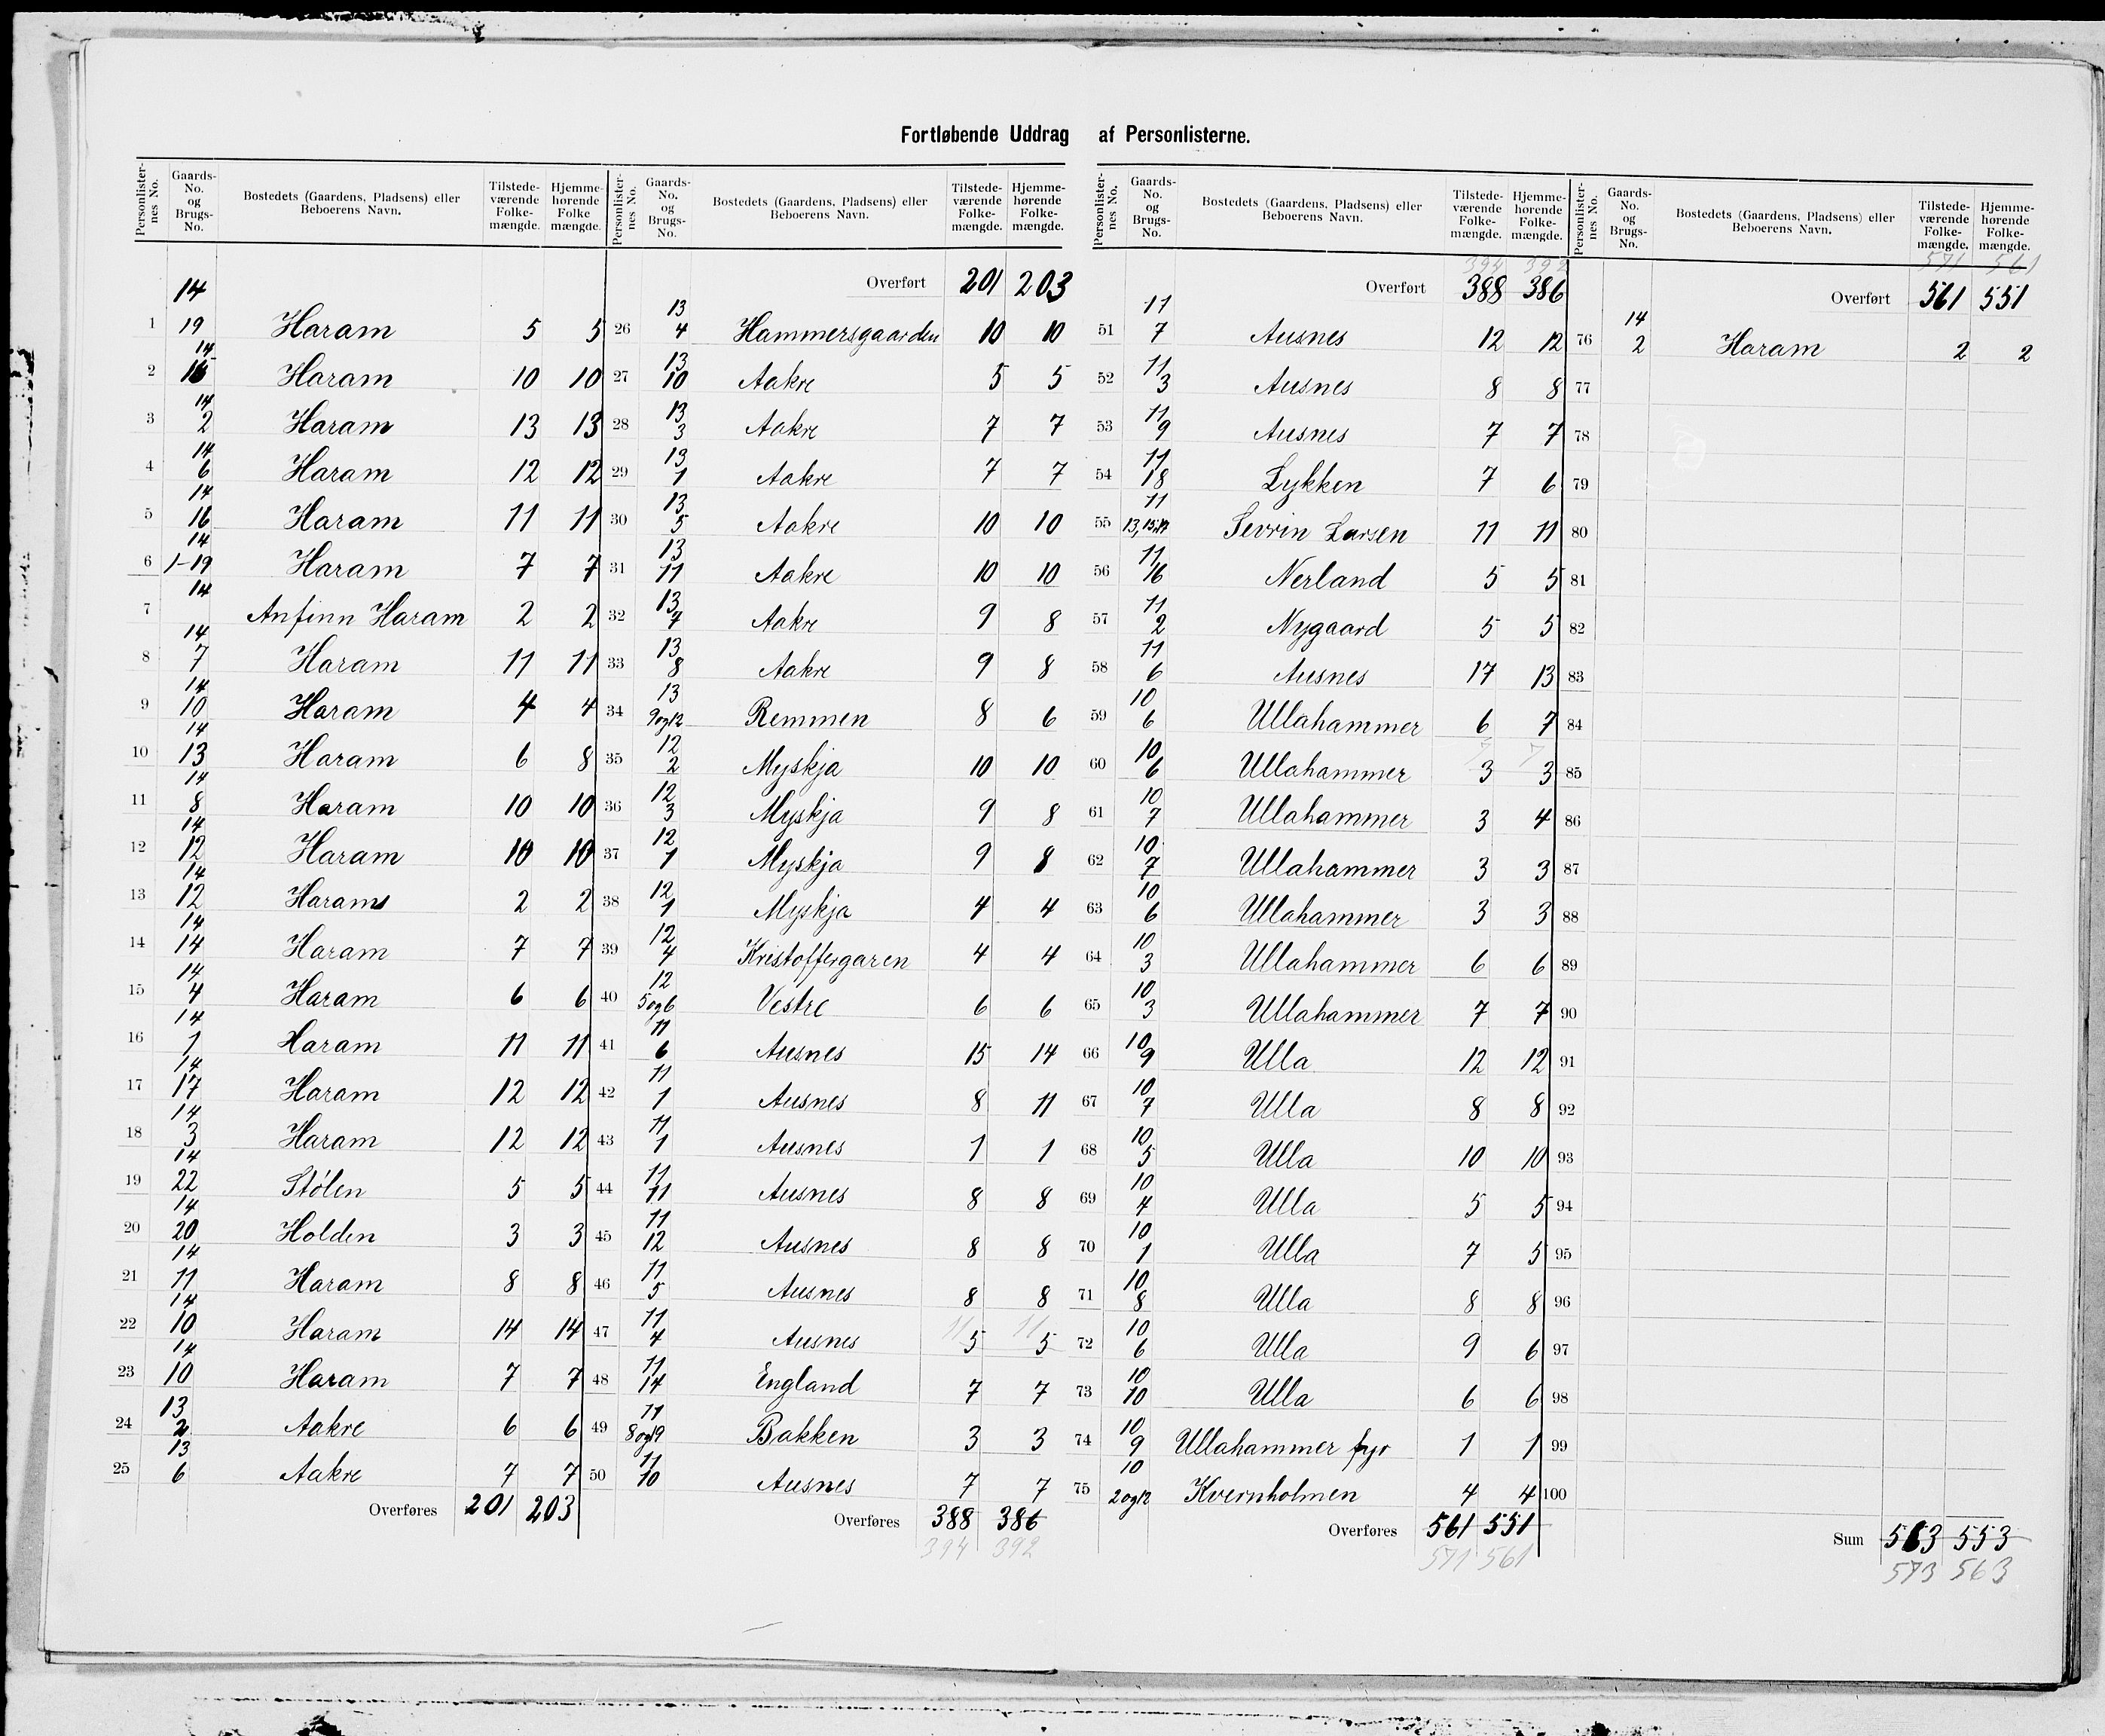 Fortløbende Uddrag af Personlisterne.
Personlister-nes No. Gaards-No. og Brugs-No. Bostedets (Gaardens, Pladsens) eller Beboerens Navn. Tilstede-værende Folke-mængde. Hjemme-hørende Folke mængde.
14
1 19 Haram 5 5
14
2 15 Haram 10 10
14
3 2 Haram 13 13
14
4 6 Haram 12 12
14
5 16 Haram 11 11
14
6 1-19 Haram 7 7
14
7 Anfinn Haram 2 2
14
8 7 Haram 11 11
14
9 10 Haram 4 4
14
10 13 Haram 6 8
14
11 8 Haram 10 10
14
12 12 Haram 10 10
14
13 12 Haram 2 2
14
14 14 Haram 7 7
14
15 4 Haram 6 6
14
16 1 Haram 11 11
14
17 17 Haram 12 12
14
18 3 Haram 12 12
14
19 22 Stølen 5 5
14
20 20 Holden 3 3
14
21 11 Haram 8 8
14
22 10 Haram 14 14
14
23 10 Haram 7 7
13
24 2 Aakre 6 6
13
25 6 Aakre 7 7
Overføres 201 203
Personlister-nes No. Gaards-No. og Brugs-No. Bostedets (Gaardens, Pladsens) eller Beboerens Navn. Tilstede-værende Folke-mængde. Hjemme-hørende Folke-mængde.
Overført 201 203
13
26 4 Hammersgaarden 10 10
13
27 10 Aakre 5 5
13
28 3 Aakre 7 7
13
29 1 Aakre 7 7
13
30 5 Aakre 10 10
13
31 11 Aakre 10 10
13
32 7 Aakre 9 8
13
33 8 Aakre 9 8
13
34 9og12 Remmen 8 6
12
35 2 Myskja 10 10
12
36 3 Myskja 9 8
12
37 1 Myskja 9 8
12
38 1 Myskja 4 4
12
39 4 Kristoffergaren 4 4
12
40 5og6 Vestre 6 6
11
41 6 Ausnes 15 14
11
42 1 Ausnes 8 11
11
43 1 Ausnes 1 1
11
44 11 Ausnes 8 8
11
45 12 Ausnes 8 8
11
46 5 Ausnes 8 8
11 11 11
47 4 Ausnes 5 5
11
48 14 England 7 7
11
49 8og19 Bakken 3 3
11
50 10 Ausnes 7 7
Overføres 388 386
394 392
Personlister-nes No. Gaards-No. og Brugs-No. Bostedets (Gaardens, Pladsens) eller Beboerens Navn. Tilstede-værende Folke-mængde. Hjemme-hørende Folke-mængde.
394 392
Overført 388 386
11
51 7 Ausnes 12 12
11
52 3 Ausnes 8 8
11
53 9 Ausnes 7 7
11
54 18 Lykken 7 6
11
55 13, 15, 17 Sevrin Larsen 11 11
11
56 16 Nerland 5 5
11
57 2 Nygaard 5 5
11
58 6 Ausnes 17 13
10
59 6 Ullahammer 6 7
10 7 7
60 6 Ullahammer 3 3
10
61 7 Ullahammer 3 4
10
62 7 Ullahammer 3 3
10
63 6 Ullahammer 3 3
10
64 3 Ullahammer 6 6
10
65 3 Ullahammer 7 7
10
66 9 Ulla 12 12
10
67 7 Ulla 8 8
10
68 5 Ulla 10 10
10
69 4 Ulla 5 5
10
70 1 Ulla 7 5
10
71 8 Ulla 8 8
10
72 6 Ulla 9 6
10
73 10 Ulla 6 6
10
74 9 Ullahammer fyr 1 1
10
75 2og12 Kvernholmen 4 4
Overføres 561 551
571 561
Personlister-nes No. Gaards-No. og Brugs-No. Bostedets (Gaardens, Pladsens) eller Beboerens Navn. Tilstede-værende Folke-mængde. Hjemme-hørende Folke-mængde.
571 561
Overført 561 551
14
76 2 Haram 2 2
77
78
79
80
81
82
83
84
85
86
87
88
89
90
91
92
93
94
95
96
97
98
99
100
Sum 563 553
573 563